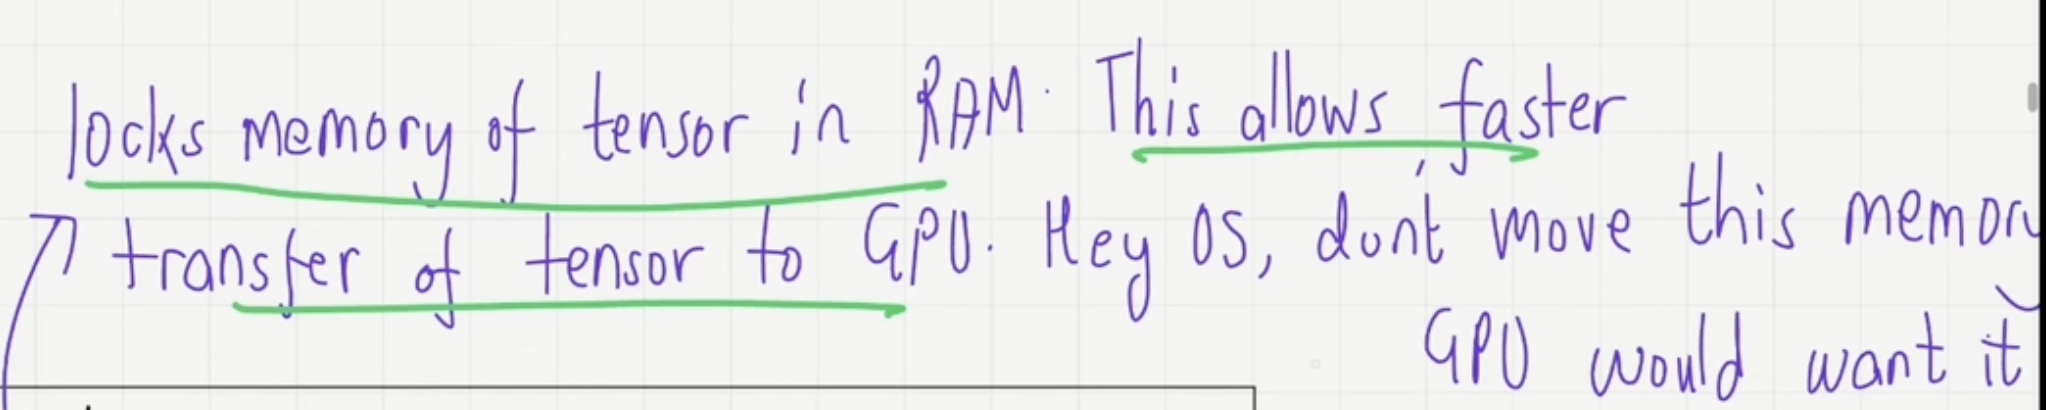 locks memory of tensor in RAM. This allows faster
transfer of tensor to GPU. Hey OS, don't move this memory
GPU would want it